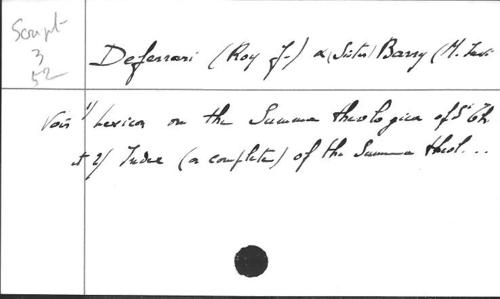 Script
3
52
Deferrari (Roy J.) & (Sister) Barry (M.
Voir 1/ Lexicon on the Summa theologica of St Th
et 2/ Index (a complete) of the Summa theol...